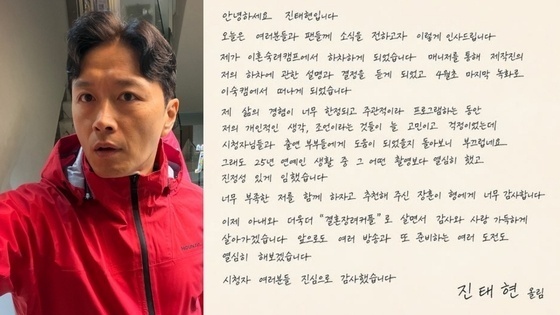 안녕하세요. 진태현입니다
오늘은 여러분들과 팬들께 소식을 전하고자 이렇게 인사드립니다
제가 이혼숙려캠프에서 하차하게 되었습니다 매니저를 통해 제작진의
저의 하차에 관한 설명과 결정을 듣게 되었고 4월초 마지막 녹화로
이숙캠에서 떠나게 되었습니다
제 삶의 경험이 너무 한정되고 주관적이라 프로그램하는 동안
저의 개인적인 생각, 조언이라는 것들이 늘 고민이고 걱정이었는데
시청자님들과 출연 부부들에게 도움이 되었을지 돌아보니 부끄럽네요
그래도 25년 연예인 생활 중 그 어떤 촬영보다 열심히 했고
진정성 있게 임했습니다
너무 부족한 저를 함께 하자고 추천해 주신 장훈이 형에게 너무 감사합니다
이제 아내와 더욱더 "결혼장려커플"로 살면서 감사와 사랑 가득하게
살아가겠습니다 앞으로도 여러 방송과 또 준비하는 여러 도전도
열심히 해보겠습니다
시청자 여러분들 진심으로 감사했습니다
진태현 올림